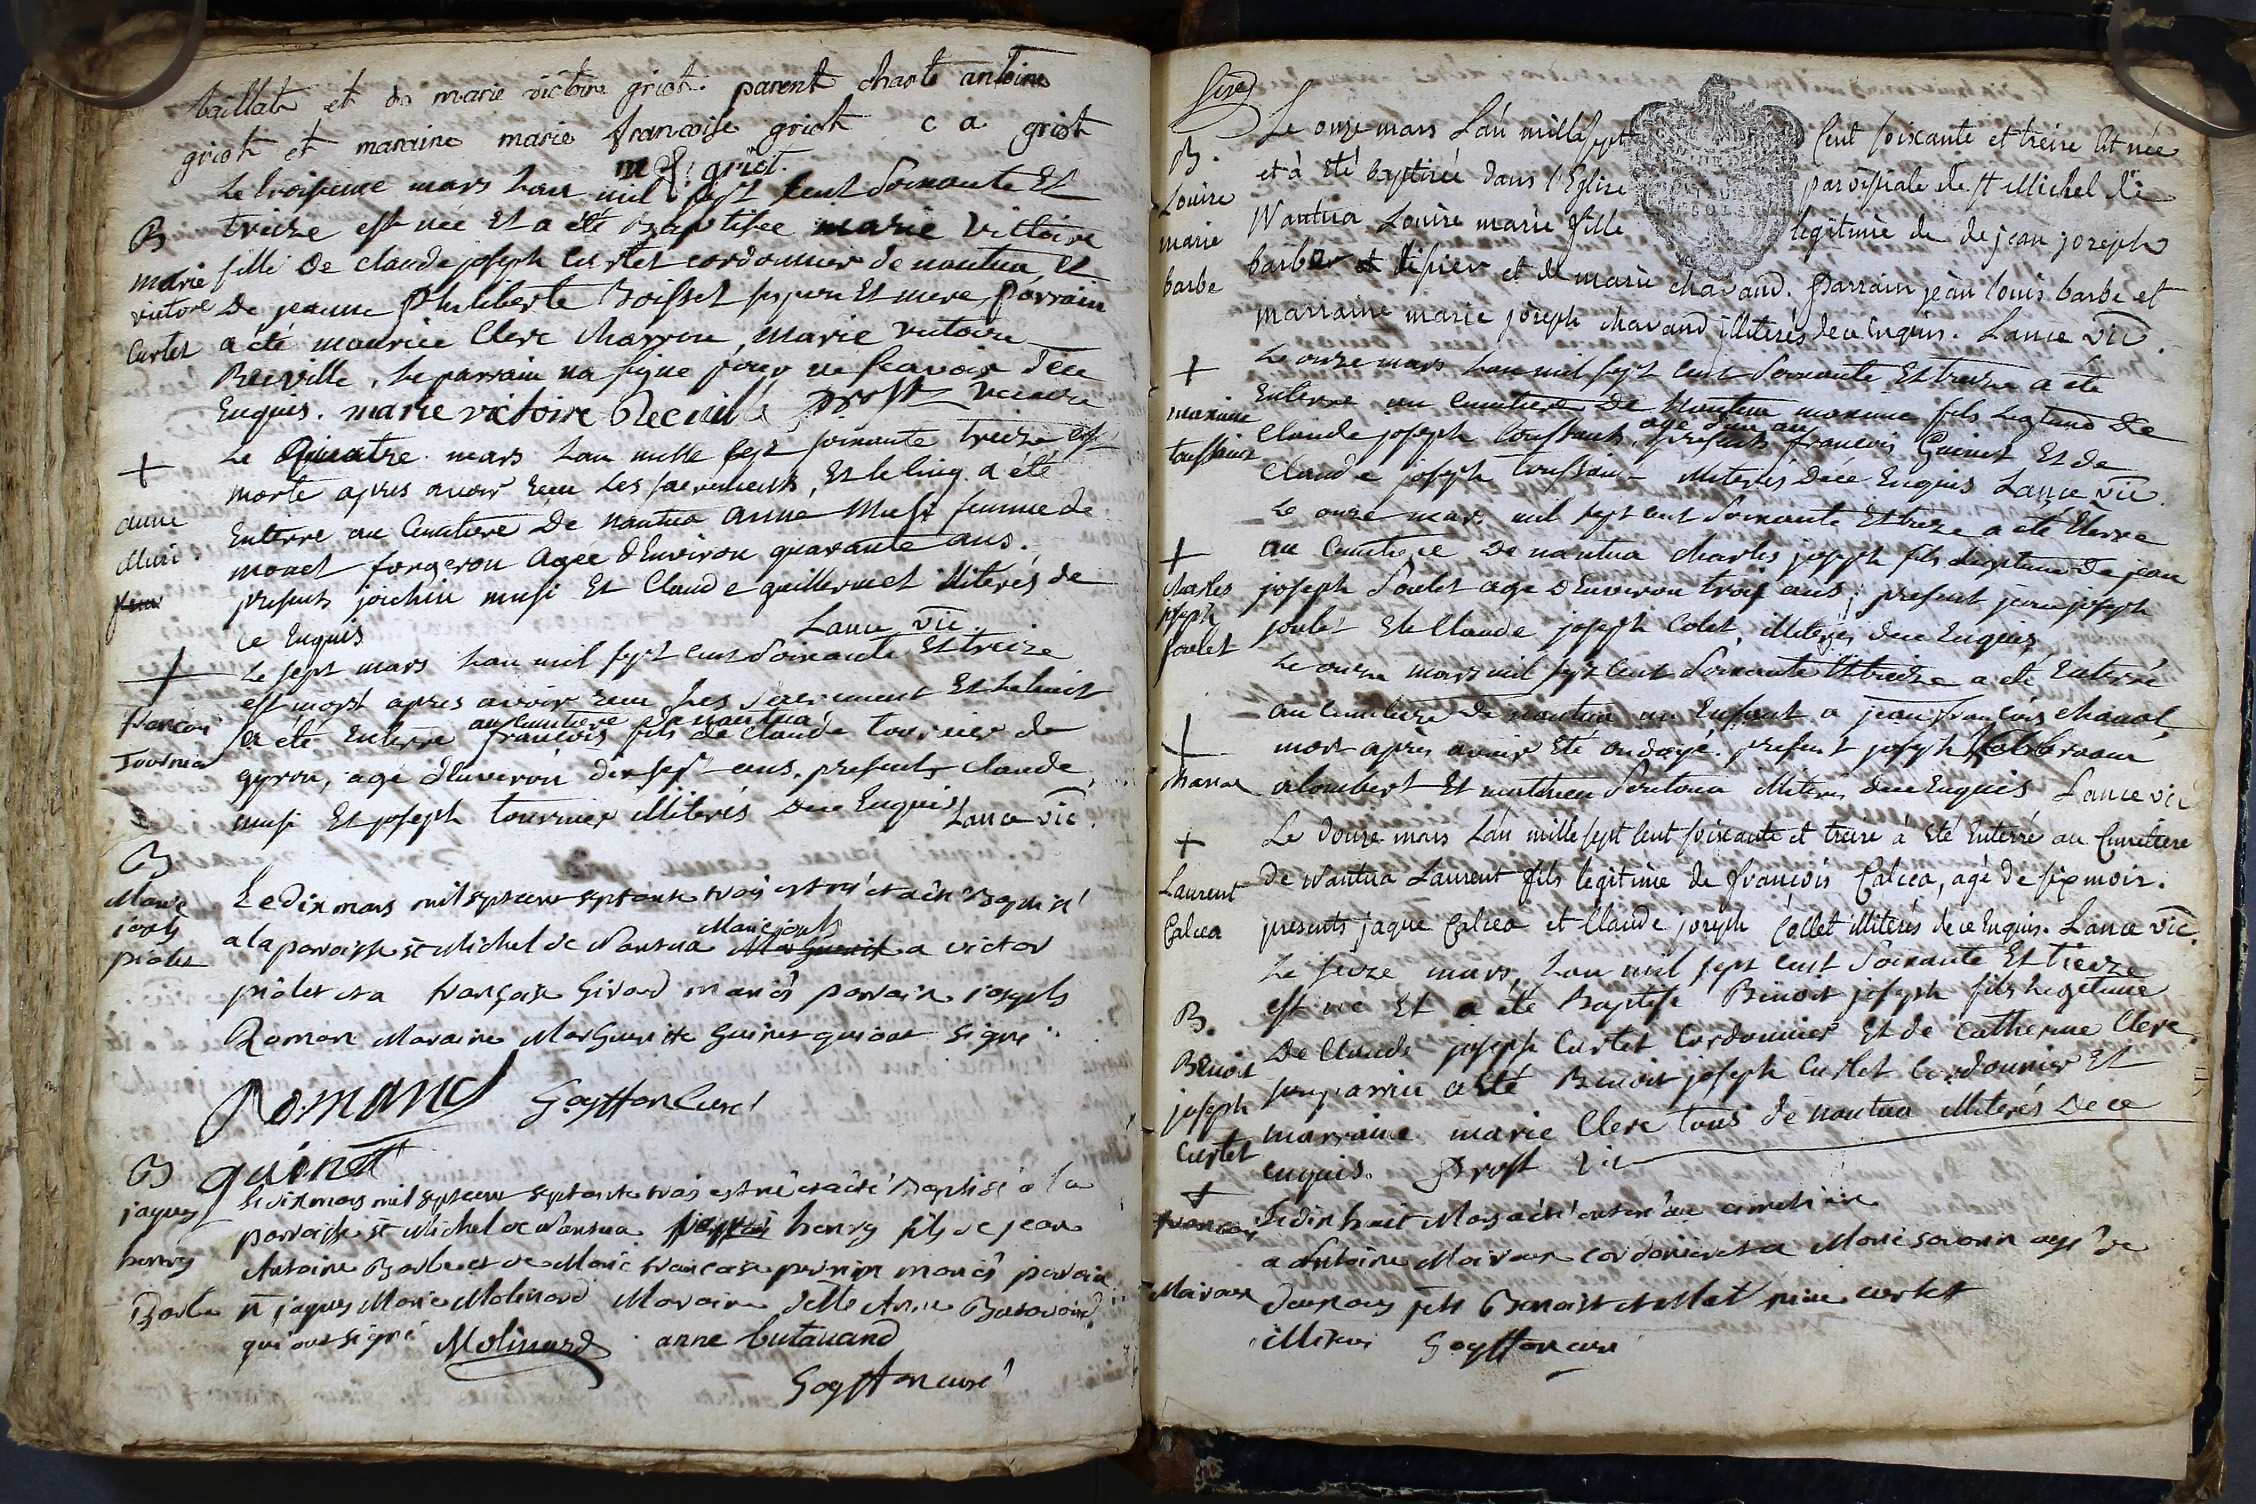 baillat et de marie victoire griot. parent charle antoine
griot et maraine marie francoise griot c a griot
m f griot.
B
marie
victoire
Curtet
Le troisieme mars Lan mil sept cent soixante Et
treize est nee Et a été Baptisée marie Victoire
fille De claude joseph Curtet cordonnier de nantua, et
De jeanne Philiberte Boisset ses pere Et mere, parrain
a été maurice Clerc charron, Marie victoire
Reciville, le parrain na signe pour ne scavoir de ce
Enquis. marie victoire Reciville Drost vicaire
+
anne
Musi
Le Quatre mars Lan mille sept soixante treize est
morte apres avoir recu Les sacrements, Et le cinq a été
Enterre au Cimetiere De nantua anne Musi femme de
monet forgeron Agée d'Environ quarante ans.
presents joachin musi Et Claude guillermet illiterés de
ce Enquis Lance vic.
+
francois
Tournier
Le sept mars Lan mil sept cent soixante Et treize
est mort apres avoir recu Les sacrement Et le huit
a été Enterre au cimetiere de nantua francois fils de claude tournier de
gyron, age d'Environ dix sept ans. presents claude
musi Et joseph tournier illiterés De ce Enquis Lance vic.
B
Marie
joseph
piolet
Le dix mars mil septcent septante trois est né et a été Baptisé
a la paroisse st Michel de Nantua Marie joseph Marguerit a victor
piolet et a françoise Girard mariés parrain joseph
Roman Maraine Margueritte Guinet qui ont signé.
Romand Goyffon curé
guinet
B
jaques
henry
Barbe
Le dix mars mil septcent septante trois est né et a été Baptisé a la
paroisse st Michel de Nantua henry fils de jean
Antoine Barbe et de Marie francoise perrin mariés parain
sr jaques Marie Molinard Maraine delle Anne Butavand
qui ont signé Molinard anne butavand
Goyffon curé
B.
Louise
marie
barbe
Le onze mars L'an mille sept Cent soixante et treize Est née
et à été baptisée dans l'Eglise paroissiale de st Michel de
Nantua Louise marie fille legitime de de jean joseph
barbe et de marie chavand. Parrain jean louis barbe et
marraine marie joseph chavand illiterés de ce Enquis. Lance vic.
+
maxime
toussaint
Le onze mars Lan mil sept cent soixante Et treize a été
Enterre au Cimetiere De Nantua maxime fils Legitime De
Claude joseph toussaint, age d'un an presents francois Guinet Et de
Claude joseph toussaint illiterés De ce Enquis Lance vic.
+
charles
joseph
soulet
Le onze mars mil sept cent soixante Et treize a été Eterre
au Cimetiere De nantua charles joseph fils Legitime De jean
joseph soulet age d'Environ trois ans; present jean joseph
soulet Et Claude joseph Colet, illiterés de ce Enquis,
+
Le onze mars mil sept cent soixante Et treize a été Enterré
au cimetiere De nantua un Enfant a jean francois chanal,
mort après avoir Eté ondoyé. present joseph
alombert Et mathieu illiterés de ce Enquis Lance vic
+
Laurent
Calcea
Le douze mars L'an mille sept cent soixante et treize à Eté Enterré au Cimetiere
de Nantua Laurent fils legitime de françois Calcea, agé de six mois.
presents jaque Calcea et Claude joseph Collet illiterés de ce Enquis. Lance vic.
B.
Benoit
joseph
Curtet
Le seize mars, Lan mil sept cent soixante Et treize
est né Et a été Baptisé Benoit joseph fils Legitime
De Claude joseph Curtet Cordonnier Et de Catherine Clerc.
son parrin a Eté Benoit joseph Curtet Cordonnier Et
marraine marie Clerc tous de nantua illiterés De ce
enquis. Drost Vic
+
francois
Mairaux
Le dix huit Mars a été enterré au cimetiere
a Antoine Mairaux cordonier et a Marie Savarin agé de
deux Benoist et curtet
illiterés Goyffon curé